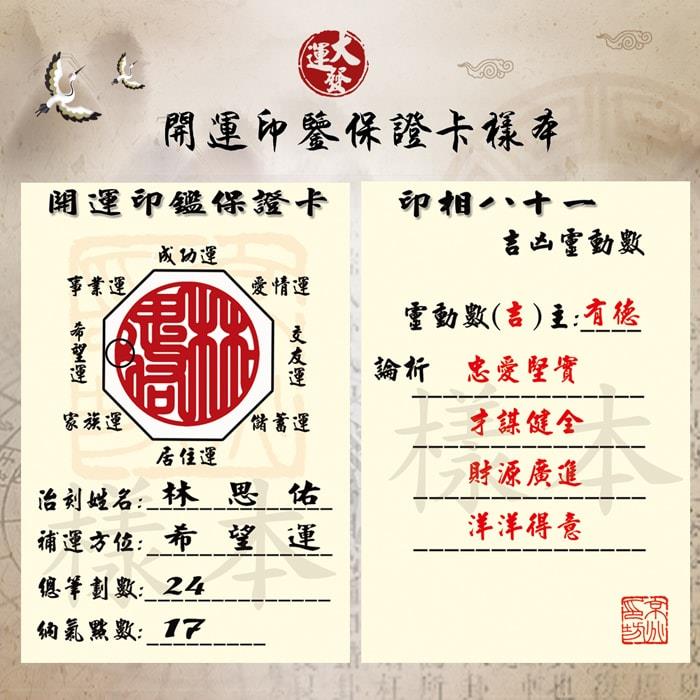 大發運
開運印鑒保證卡樣本
開運印鑑保證卡
成功運
事業運
愛情運
希望運
交友運
家族運
儲蓄運
居住運
治刻姓名: 林思佑
補運方位: 希望運
總筆劃數: 24
納氣點數: 17
樣本
印相八十一
吉凶靈動數
靈動數(吉)主:有德
論析 忠愛堅實
才謀健全
財源廣進
洋洋得意
樣本